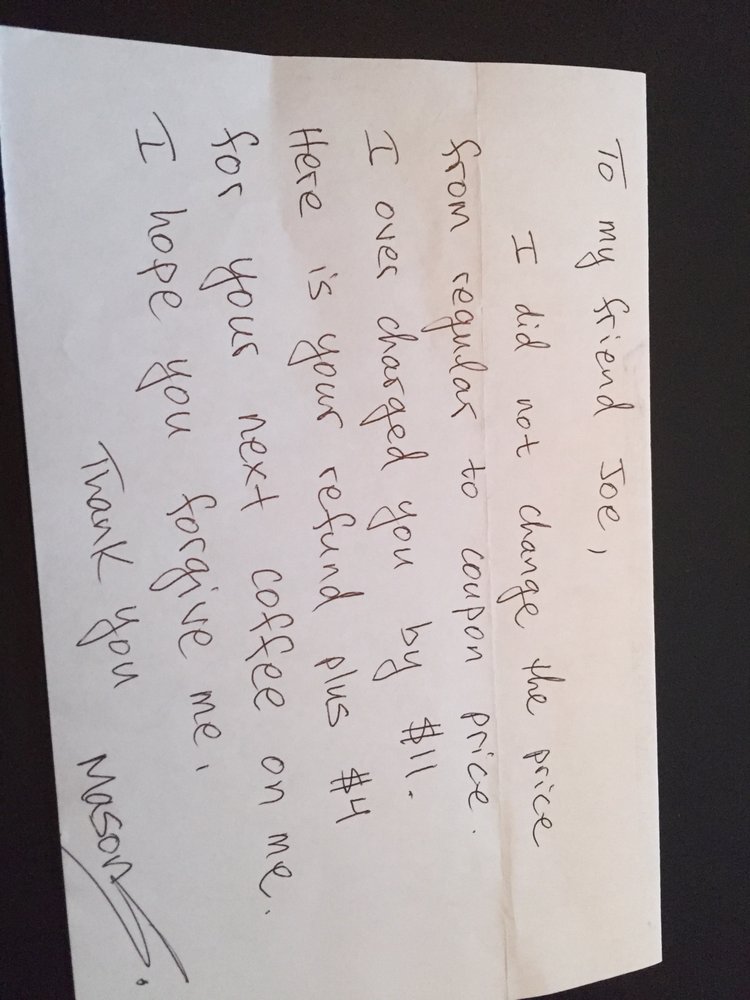 To my friend Joe,
I did not change the price
from regular to coupon price.
I over charged you by $11.
Here is your refund plus $4
for your next coffee on me.
I hope you forgive me,
Thank you Mason.